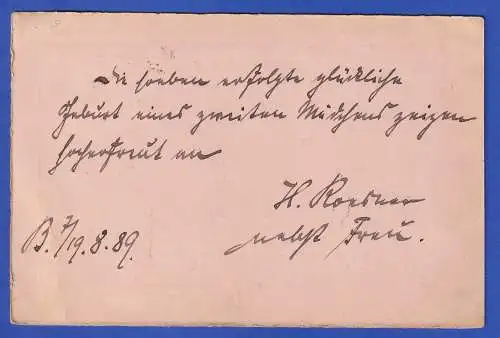 Die soeben erfolgte glückliche
Geburt eines zweiten Mädchens zeigen
hocherfreut an
H. Roesner
nebst Frau.
B. 7/19.8.89.